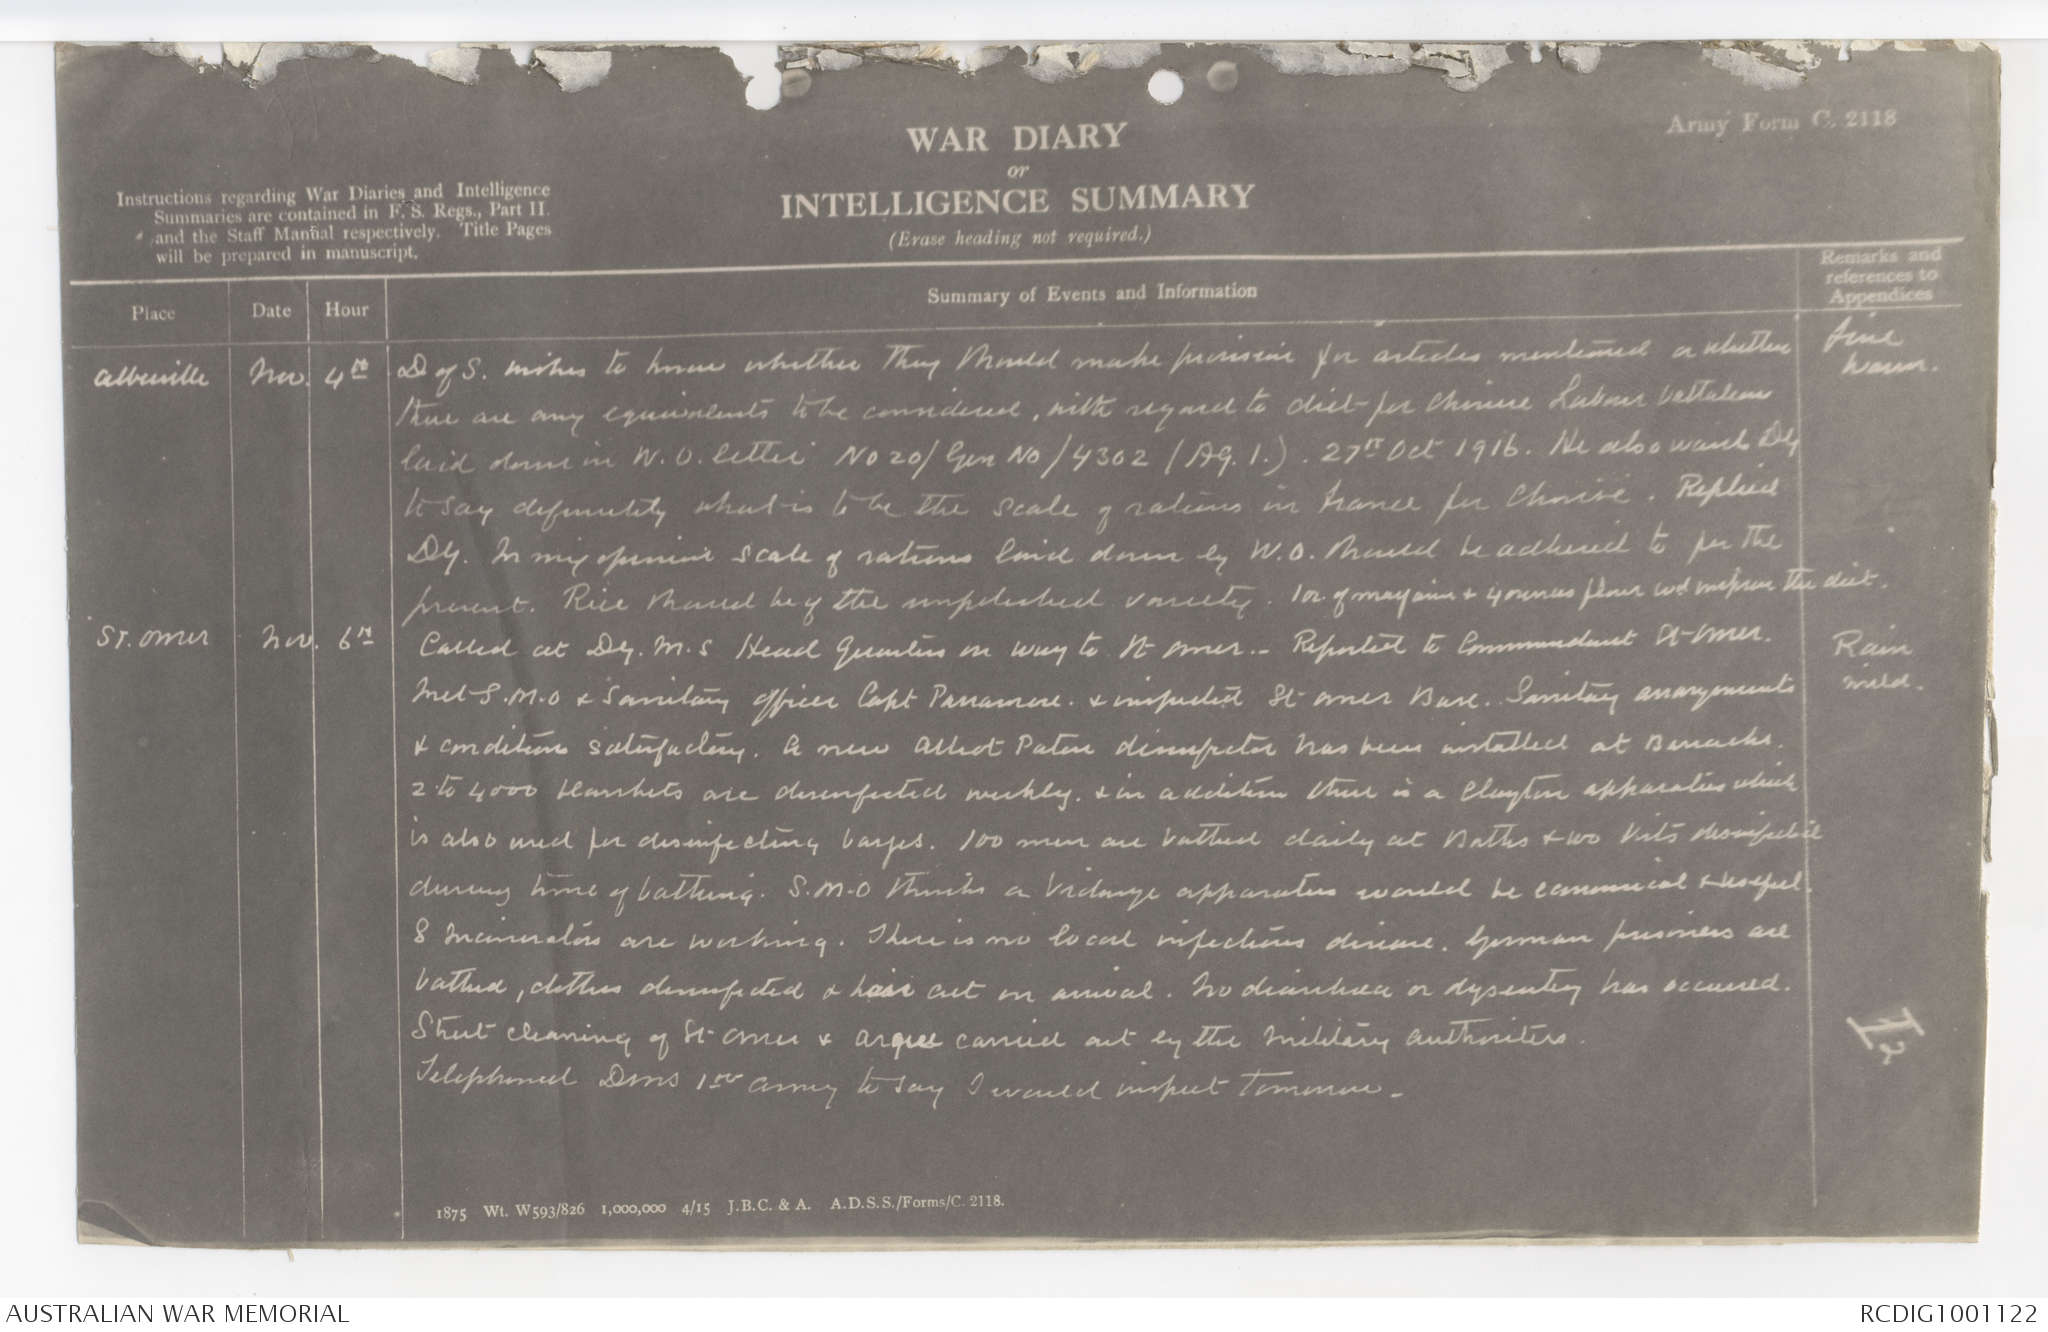 Army Form C. 2118
WAR DIARY
or
INTELLIGENCE SUMMARY
(Erase heading not required.)
Instructions regarding War Diaries and Intelligence
Summaries are contained in F. S. Regs., Part II.
and the Staff Manual respectively. Title Pages
will be prepared in manuscript.
Place
Date
Hour
Summary of Events and Information
Remarks and
references to
Appendices
Abbeville Nov. 4th D of S. wishes to know whether they should make provision for articles mentioned or whether
Fine
warm.
there are any equivalents to be considered, with regard to diet for Chinese Labour battalion
laid down in W.O. letter No 20/Gen No/4302 (AG.1.). 27th Oct 1916. He also wants DG
to say definitely what is to be the scale of rations in France for Chinese. Replied
DG. In my opinion scale of rations laid down by W.O. should be adhered to for the
present. Rice should be of the unpolished variety. 1oz. of margarine & 4 ounces flour wd improve the diet.
St. Omer Nov. 6th Called at DG. M.S Head Quarters on way to St Omer. - Reported to Commandant St Omer.
Rain
mild.
Met S.M.O & Sanitary Officer Capt Parramore. & inspected St Omer Base. Sanitary arrangements
& conditions satisfactory. A new Alliott Paton disinfector has been installed at Barracks.
2 to 4000 blankets are disinfected weekly. & in addition there is a Clayton apparatus which
is also used for disinfecting barges. 100 men are bathed daily at Baths & 100 kits disinfected
during time of bathing. S.M.O thinks a Vidange apparatus would be economical & useful.
8 Incinerators are working. There is no local infectious disease. German prisoners are
bathed, clothes disinfected & hair cut on arrival. No diarrhoea or dysentery has occurred.
Street cleaning of St Omer & Arques carried out by the Military authorities.
Telephoned DMS 1st Army to say I would inspect tomorrow. -
1875 Wt. W593/826 1,000,000 4/15 J.B.C. & A. A.D.S.S./Forms/C. 2118.
AUSTRALIAN WAR MEMORIAL
RCDIG1001122